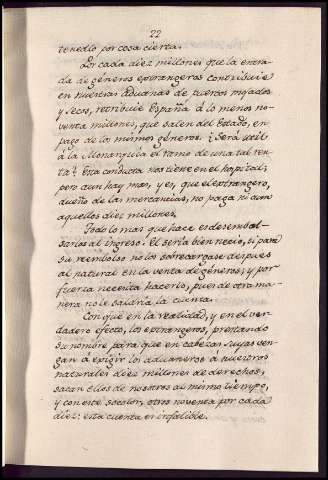 22
tenedlo por cosa cierta.
Por cada diez millones que la entra-
da de géneros extrangeros contribuie
en nuestras Aduanas de Puertos mojados
y Secos, retribuie España á lo menos no-
venta millones, que salen del Estado, en
pago de los mismos géneros. ¿Será util
á la Monarquia el ramo de una tal ren-
ta? Esta conducta nos tiene en el hospital;
pero aun hay mas, y es, que el extrangero,
dueño de las mercancias, no paga ni aun
aquellos diez millones.
Todo lo mas que hace es desembol-
sarlos al ingreso. El sería bien necio, si para
su reembolso no los sobrecargase despues
al natural en la venta de géneros; y por
fuerza necesita hacerlo, pues de otra ma-
nera no le saldría la cuenta.
Con que en la realidad, y en el ver-
dadero efecto, los extrangeros, prestando
su nombre para que en cabezas suyas ven-
gan á exigir los aduaneros á nuestros
naturales diez millones de derechos,
sacan ellos de nosotros al mismo tiempo,
y con este socolor, otros noventa por cada
diez: esta cuenta es infalible.